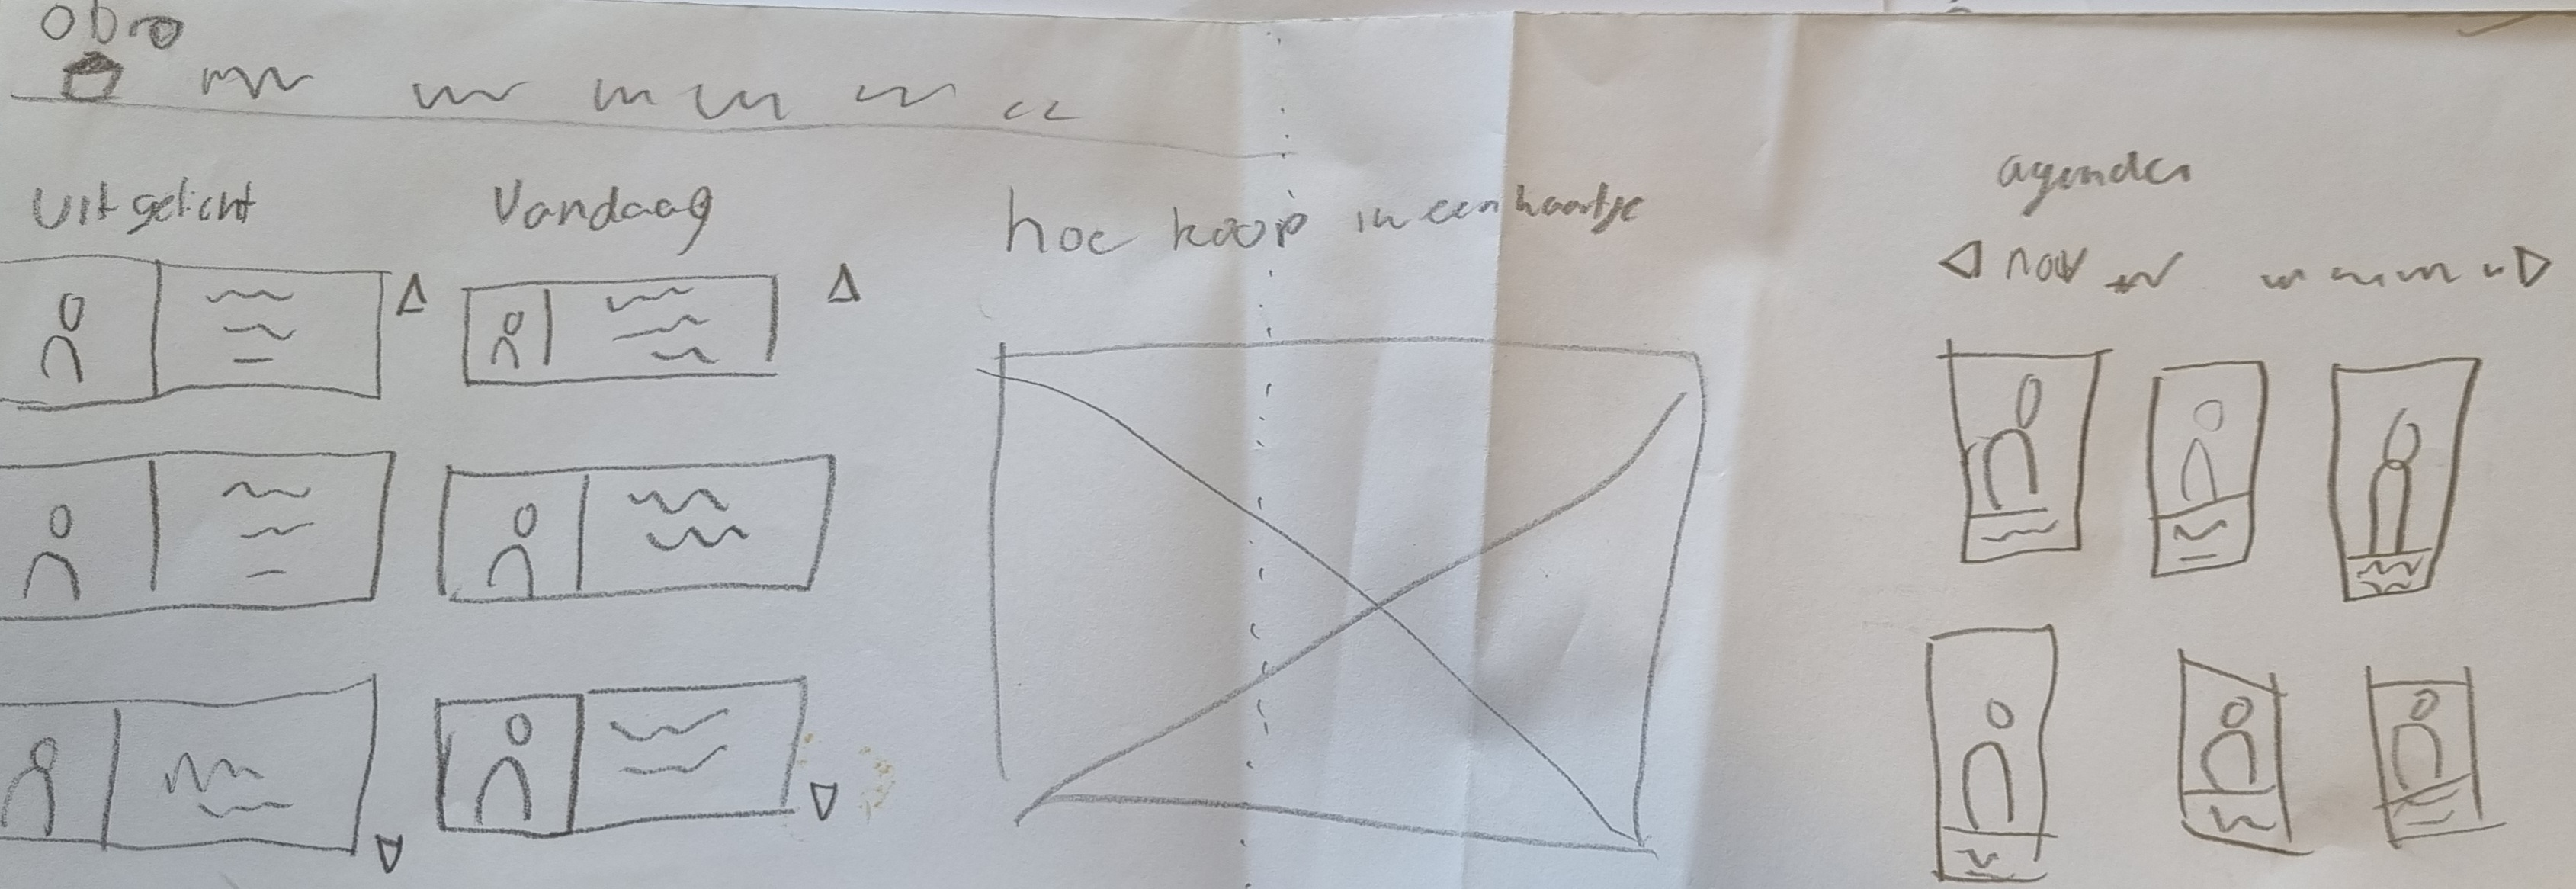 obro
Uitgelicht
Vandaag
hoe koop ik een kaartje
agenda
nov